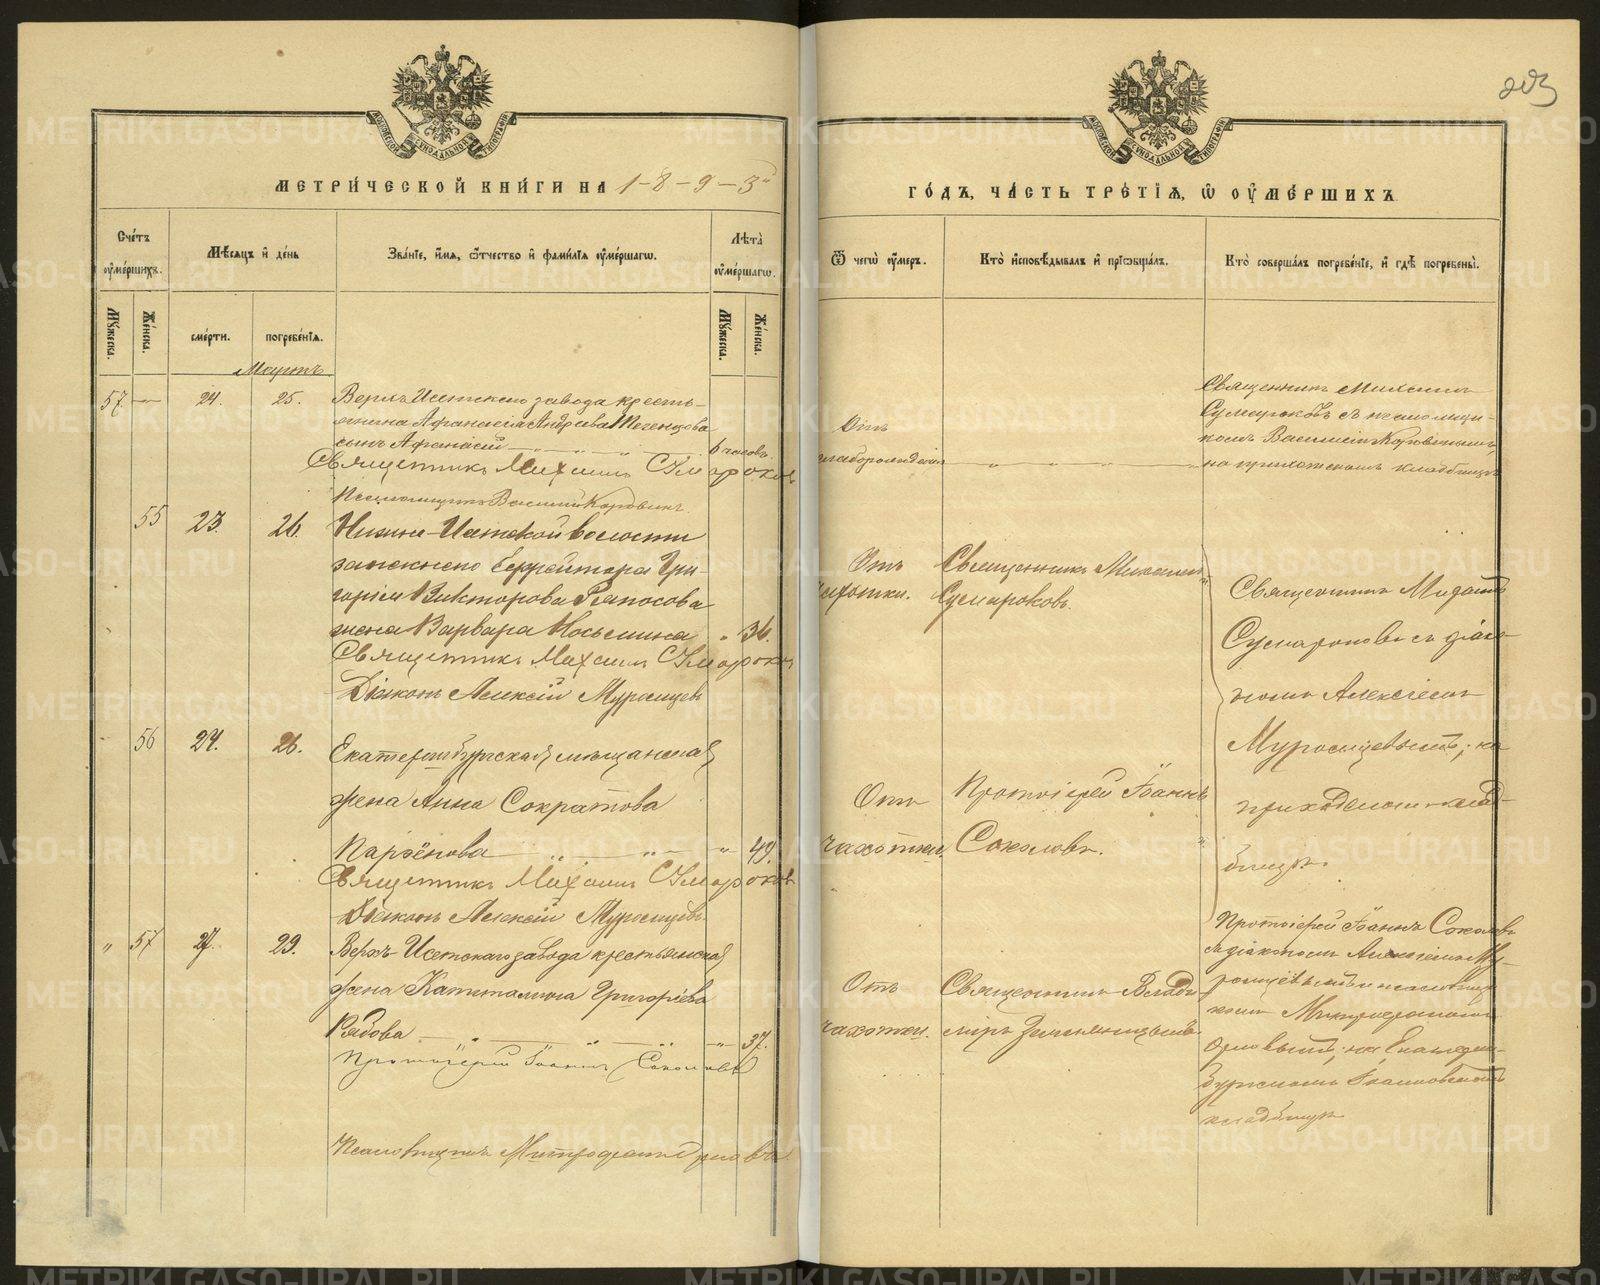 203
МОСКОВСКОЙ СѴНОДАЛЬНОЙ ТИПОГРАФІИ
МОСКОВСКОЙ СѴНОДАЛЬНОЙ ТИПОГРАФІИ
МЕТРИ́ЧЕСКОЙ КНИ́ГИ НА 1-8-9-3й
ГО́ДЪ, ЧА́СТЬ ТРЕ́ТІѦ, Ѡ ОУ҆МЕ́РШИХЪ
Сче́тъ оу҆ме́ршихъ.
Мѣ́сяцъ и҆ де́нь
Зва́ніе, и҆́мя, ѻ҆́тчество и҆ фами́лія оу҆ме́ршагѡ.
Лѣ́та оу҆ме́ршагѡ.
Ѿ чегѡ̀ оу҆́меръ.
Кто̀ и҆сповѣ́дывалъ и҆ прїѡбща́лъ.
Кто̀ соверша́лъ погребе́ніе, и҆ гдѣ̀ погребены̀.
Мꙋ́жеска.
Же́нска.
сме́рти.
погребе́нія.
Мꙋ́жеска.
Же́нска.
Мартъ
57. — 24. 25. Верхъ Исетскаго завода кресть-
янина Афанасія Андреева
сынъ Афанасій 6 часовъ.
Священникъ Михаилъ Сумароковъ
Псаломщикъ Василій Коровинъ.
Отъ
слаборожденія
Священникъ Михаилъ
Сумароковъ съ псаломщи-
комъ Василіемъ Коровинымъ,
на приходскомъ кладбищѣ
55 23. 26. Нижне-Исетской волости
запаснаго Ефрейтора Гри-
горія Викторова
жена Варвара Косьмина „ 36.
Священникъ Михаилъ Сумароковъ
Діаконъ Алексій Муромцевъ
Отъ
чахотки.
Священникъ Михаилъ
Сумароковъ.
Священникъ Михаилъ
Сумароковъ съ діако-
номъ Алексіемъ
Муромцевымъ, на
приходскомъ клад-
бищѣ.
56 24. 26. Екатеринбургская мѣщанская
жена Анна Сократова
Парѳёнова „ 49.
Священникъ Михаилъ Сумароковъ
Діаконъ Алексій Муромцевъ
Отъ
чахотки.
Протоіерей Іоаннъ
Соколовъ.
„ 57 27. 29. Верхъ-Исетскаго завода крестьянская
жена Капитолина Григоріева
Рябова „ 37.
Протоіерей Іоаннъ Соколовъ
Псаломщикъ Митрофанъ Орловъ
Отъ
чахотки.
Священникъ Влади-
міръ Земляницынъ
Протоіерей Іоаннъ Соколовъ
съ діакономъ Алексіемъ Му-
ромцевымъ и псаломщи-
комъ Митрофаномъ
Орловымъ, на Екатерин-
бургскомъ Іоанновскомъ
кладбищѣ
METRIKI.GASO-URAL.RU